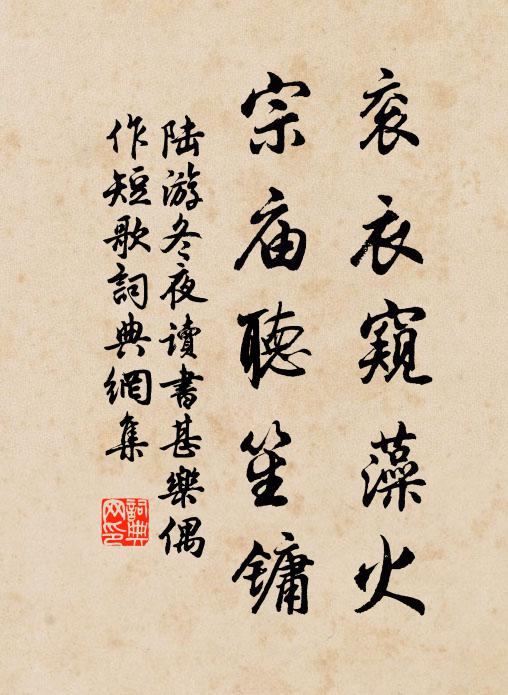 衮衣窥藻火
宗庙聽笙鏞
陆游冬夜讀書甚樂偶
作短歌詞典網集
詞典
网印